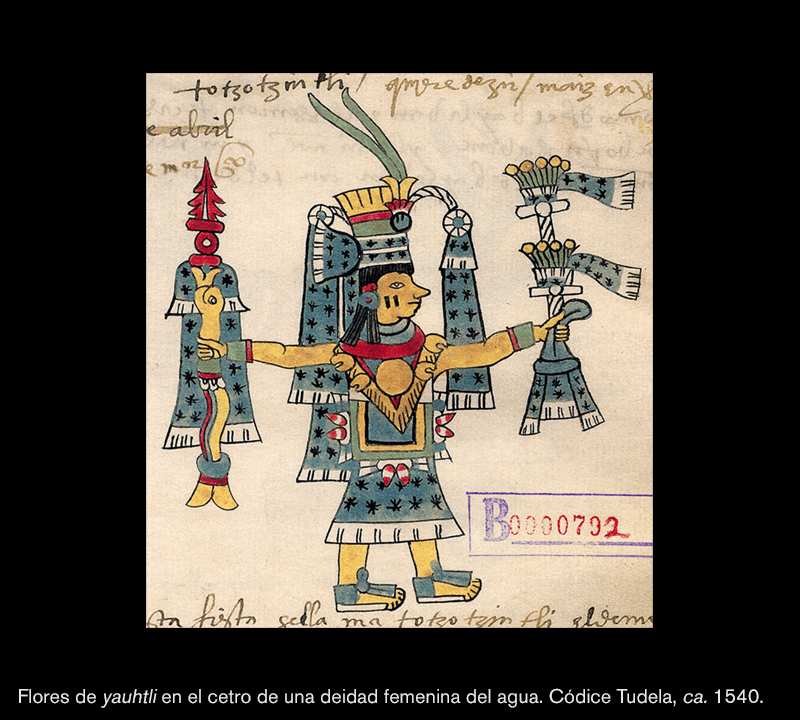 totzotzintli / quiere dezir / maiz en
e abril
B0000792
sta fiesta se lla ma totzotzintli el dem
Flores de yauhtli en el cetro de una deidad femenina del agua. Códice Tudela, ca. 1540.